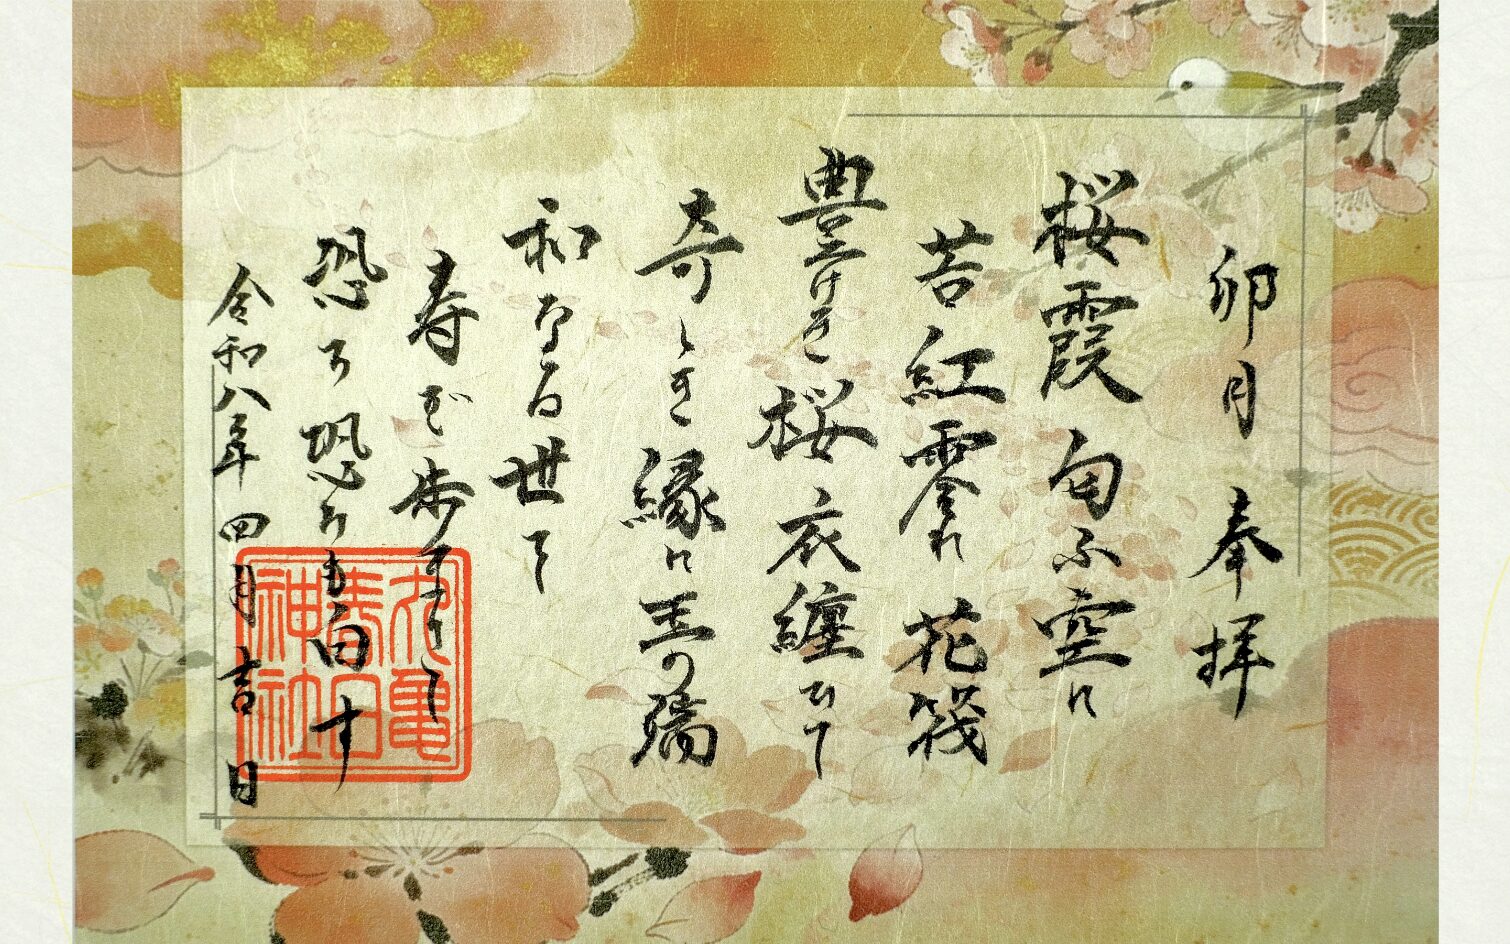 卯月 奉拝
桜霞 匂ふ空に
苔紅零れ 花筏
豊けき 桜衣纏ひて
奇しき縁に 玉の
和なる世で
寿ぎ歩
恐み恐みも白す
令和八年 四月吉日
丸亀
春日
神社